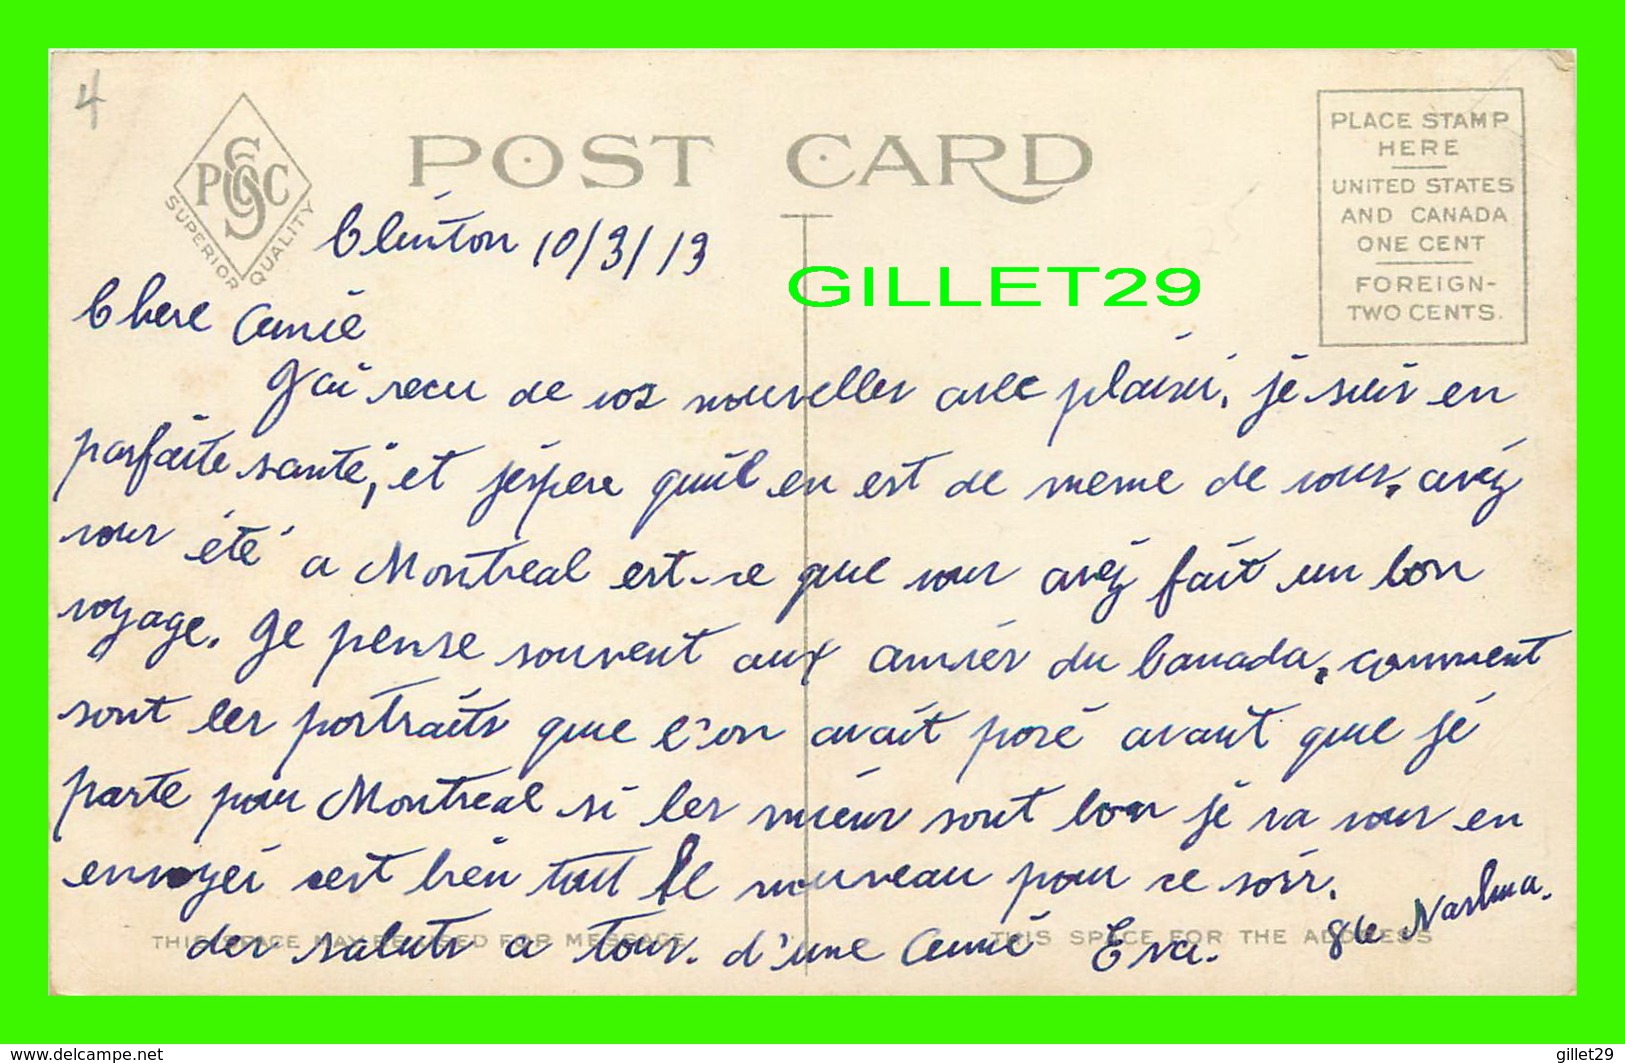 4
PGSC
SUPERIOR QUALITY
POST CARD
PLACE STAMP
HERE
UNITED STATES
AND CANADA
ONE CENT
FOREIGN-
TWO CENTS.
Clinton 10/3/13
GILLET29
Chere amie
J'ai recu de vos nouvelles avec plaisir, je suis en
parfaite santé, et j'éspere quil en est de meme de vous, avéz
vous été a Montreal est-ce que vous avéz fait un bon
voyage. Je pense souvent aux amies du Canada, comment
sont les portraits que l'on avait posé avant que jé
parte pour Montreal si les miens sont bon jé va vous en
envoyér cest bien tout le nouveau pour ce soir.
des saluts a tous. d'une amie Eva.
THIS SPACE MAY BE USED FOR MESSAGE
THIS SPACE FOR THE ADDRESS
delcampe.net
gillet29